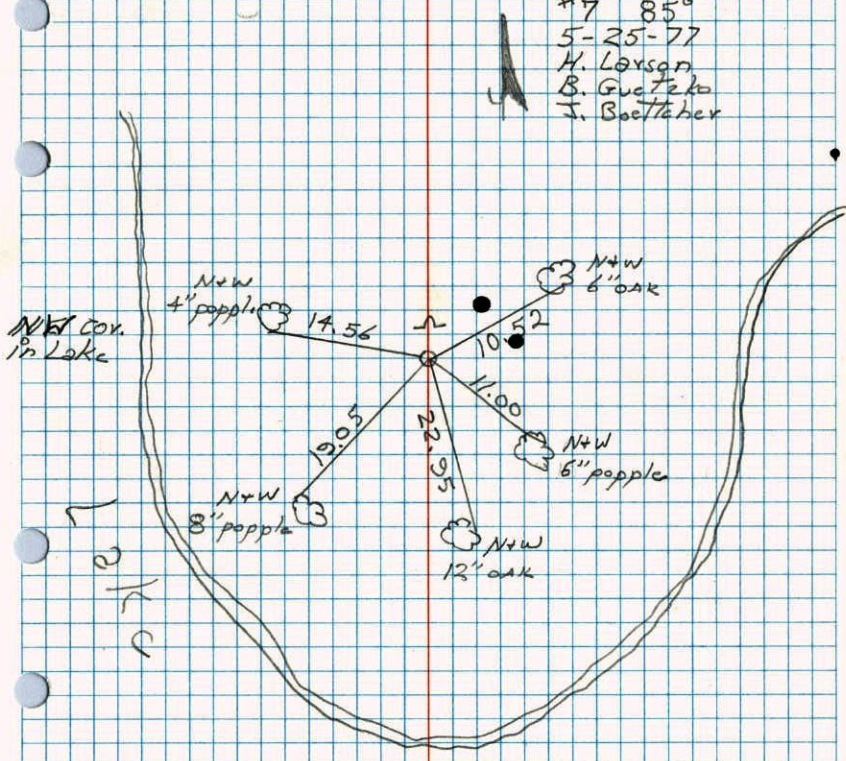 #7 85°
5-25-77
H. Larson
B. Guetzko
J. Boettcher
N+W
6" OAK
N+W
4" popple
14.56
10.52
NW cor.
in Lake
11.00
19.05
22.95
N+W
6" popple
N+W
8" popple
N+W
12" OAK
Lake